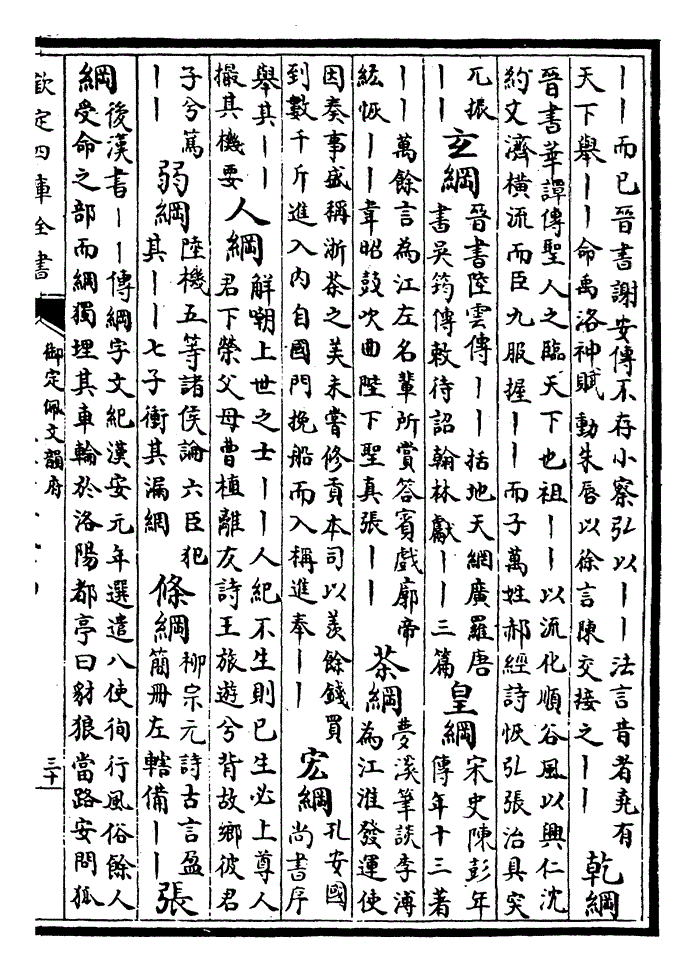 丨丨而已晉書謝安傳不存小察弘以丨丨法言昔者堯有
天下舉丨丨命禹洛神賦動朱唇以徐言陳交接之丨丨
乾綱
晉書華譚傳聖人之臨天下也祖丨丨以流化順谷風以興仁沈
約文濟橫流而臣九服握丨丨而子萬姓郝經詩恢弘張治具突
兀振
丨丨
玄綱
晉書陸雲傳丨丨括地天網廣羅唐
書吳筠傳敕待詔翰林獻丨丨三篇
皇綱
宋史陳彭年
傳年十三著
丨丨萬餘言為江左名輩所賞答賓戲廓帝
紘恢丨丨韋昭鼓吹曲陛下聖真張丨丨
茶綱
夢溪筆談李溥
為江淮發運使
因奏事盛稱浙茶之美未嘗修貢本司以羨餘錢買
到數千斤進入內自國門挽船而入稱進奉丨丨
宏綱
孔安國
尚書序
舉其丨丨
撮其機要
人綱
解嘲上世之士丨丨人紀不生則已生必上尊人
君下榮父母曹植離友詩王旅遊兮背故鄉彼君
子兮篤
丨丨
弱綱
陸機五等諸侯論六臣犯
其丨丨七子衝其漏網
條綱
柳宗元詩古言盈
簡冊左轄備丨丨
張
綱
後漢書丨丨傳綱字文紀漢安元年選遣八使徇行風俗餘人
受命之部而綱獨埋其車輪於洛陽都亭曰豺狼當路安問狐
欽定四庫全書
御定佩文韻府
三十